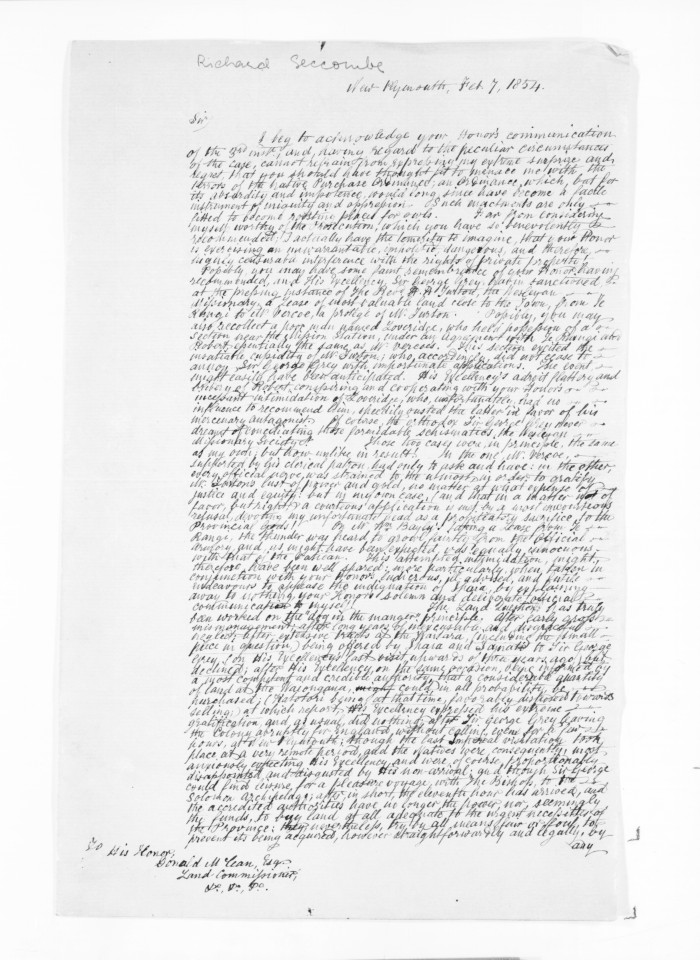 Richard Seccombe
New Plymouth, Feb 7, 1854.
Sir
I beg to acknowledge your Honor's communication
of the 3rd inst, and, having regard to the peculiar circumstances
of the case, cannot refrain from expressing my extreme surprise and
regret that you should have thought fit to menace me with the
terrors of the Native Purchase Ordinance, an Ordinance, which, but for
its absurdity and impotence, would long since have become a facile
instrument of iniquity and oppression. Such enactments are only
fitted to become roosting places for owls. Far from considering
myself worthy of the Protection, which you have so benevolently
recommended, I actually have the temerity to imagine, that your Honor
is exercising an unwarrantable, and therefore
censurable interference with the rights of private property.
Possibly you may have some faint remembrance of your Honor having
recommended, and His Excellency Sir George Grey having sanctioned
at the pressing instance of The Revd H. H. Turton, the Wesleyan
Missionary, a Lease of most valuable land close to the Town, from
to Mr Vercoe, a protégé of Mr Turton. Possibly, you may
also recollect a poor man named Loveridge, who held possession of a
Section near the Mission Station, under an agreement with
essentially the same as Mr Vercoe's. This Section excited the
insatiable cupidity of Mr Turton; who, accordingly, did not cease to
annoy Sir George Grey with importunate applications. The event
might easily have been anticipated. His Excellency's adroit flattery and
conspiring and co-operating with your Honor's
incessant intimidation of Loveridge, who, unfortunately, had no
influence to recommend him, speedily ousted the latter in favor of his
mercenary antagonist. Of course, the orthodox Sir George Grey never
dreamt of conciliating those formidable schismatics, the Wesleyan
Missionary Society!! These two cases were, in principle, the same
as my own; but how unlike in result! In the one Mr. Vercoe,
supported by his clerical patron had only to ask and have: in the other,
every official nerve was strained to the utmost, in order to gratify
Mr. Turton's lust of power and gold, no matter at what expense of
justice and equity: but in my own case, (and that in a matter not of
favor, but right) a courteous application is met by a most
refusal, devoting my unfortunate head as a propitiatory sacrifice, to the
Provincial gods! By Mr Wm taking a lease from
the thunder was heard to growl faintly from the Official
oratory, and, as might have been expected, was equally innocuous
with that of the Vatican. This abortive intimidation, might,
therefore, have been well spared; more particularly, when taken in
conjunction with your Honor's ludicrous, ill advised, and futile
endeavours to appease the indignation of Ihaia, by explaining
away to nothing, your Honor's solemn and deliberate official
communication to myself. The Land Question has truly
been worked on the dog in the manger principle. After early
mismanagement; after long years of and disgraceful
neglect; after extensive tracts of the Waitara, (including the small
piece in question) being offered by Ihaia and to Sir George
Grey, on His Excellency's last visit, upwards of three years ago, but
declined; after His Excellency, on the same occasion, being informed by
a most competent and credible authority, that a considerable quantity
of land at the could, in all probability, be
purchased, (natives being, at that time, favorably disposed towards
selling,) at which report, His Excellency expressed his extreme
gratification and, as usual, did nothing; after Sir George Grey leaving
the Colony abruptly for England, without calling, even for a few
hours, at New Plymouth; though the last visitation took
place at a very remote period, and the Natives were, consequently, most
anxiously expecting His Excellency, and were, of course, proportionably
disappointed and disgusted by His non-arrival; and though Sir George
could find leisure, for a pleasure voyage, with The Bishop, to the
Solomon Archipelago; after, in short, the eleventh hour has arrived, and
the accredited authorities have no longer the power, nor, seemingly
the funds, to buy land at all adequate to the urgent necessities of
the Province; they nevertheless, try by all means, fair or foul, to
prevent its being acquired, however straightforwardly and legally, by
any
To His Honor,
Donald McLean, Esq.
Land Commissioner,
&c, &c, &c.